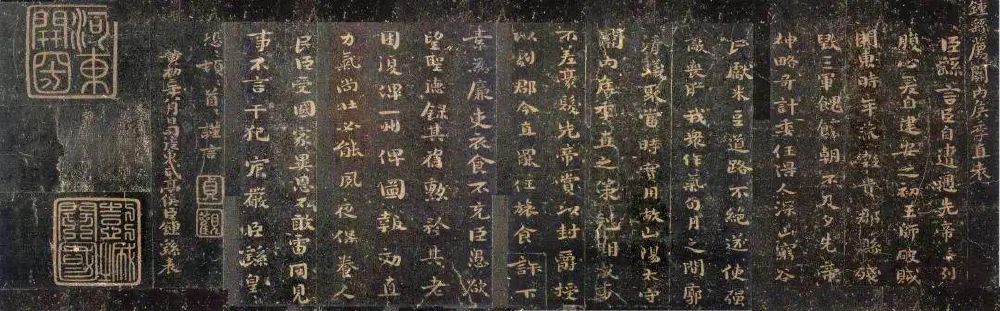 鍾繇薦關內侯季直表
臣繇言臣自遭遇先帝忝列
腹心爰自建安之初王師破賊
關東時年荒穀貴郡縣殘
毀三軍餽饟朝不及夕先帝
神略奇計委任得人深山窮谷
民獻米豆道路不絕遂使強
敵喪膽我眾作氣旬月之間廓
清蟻聚當時實用故山陽太守
關內侯季直之策剋期成事
不差豪髮先帝賞以封爵授
以劇郡今直罷任旅食許下
素為廉吏衣食不充臣愚欲
望聖德錄其舊勳矜其老
困復俾一州俾圖報效直
力氣尚壯必能夙夜保養人
民臣受國家異恩不敢雷同見
事不言干犯宸嚴臣繇皇
恐頓首謹言
貞觀
黃初二年八月日司徒東武亭侯臣鍾繇表
河東
彭城開國